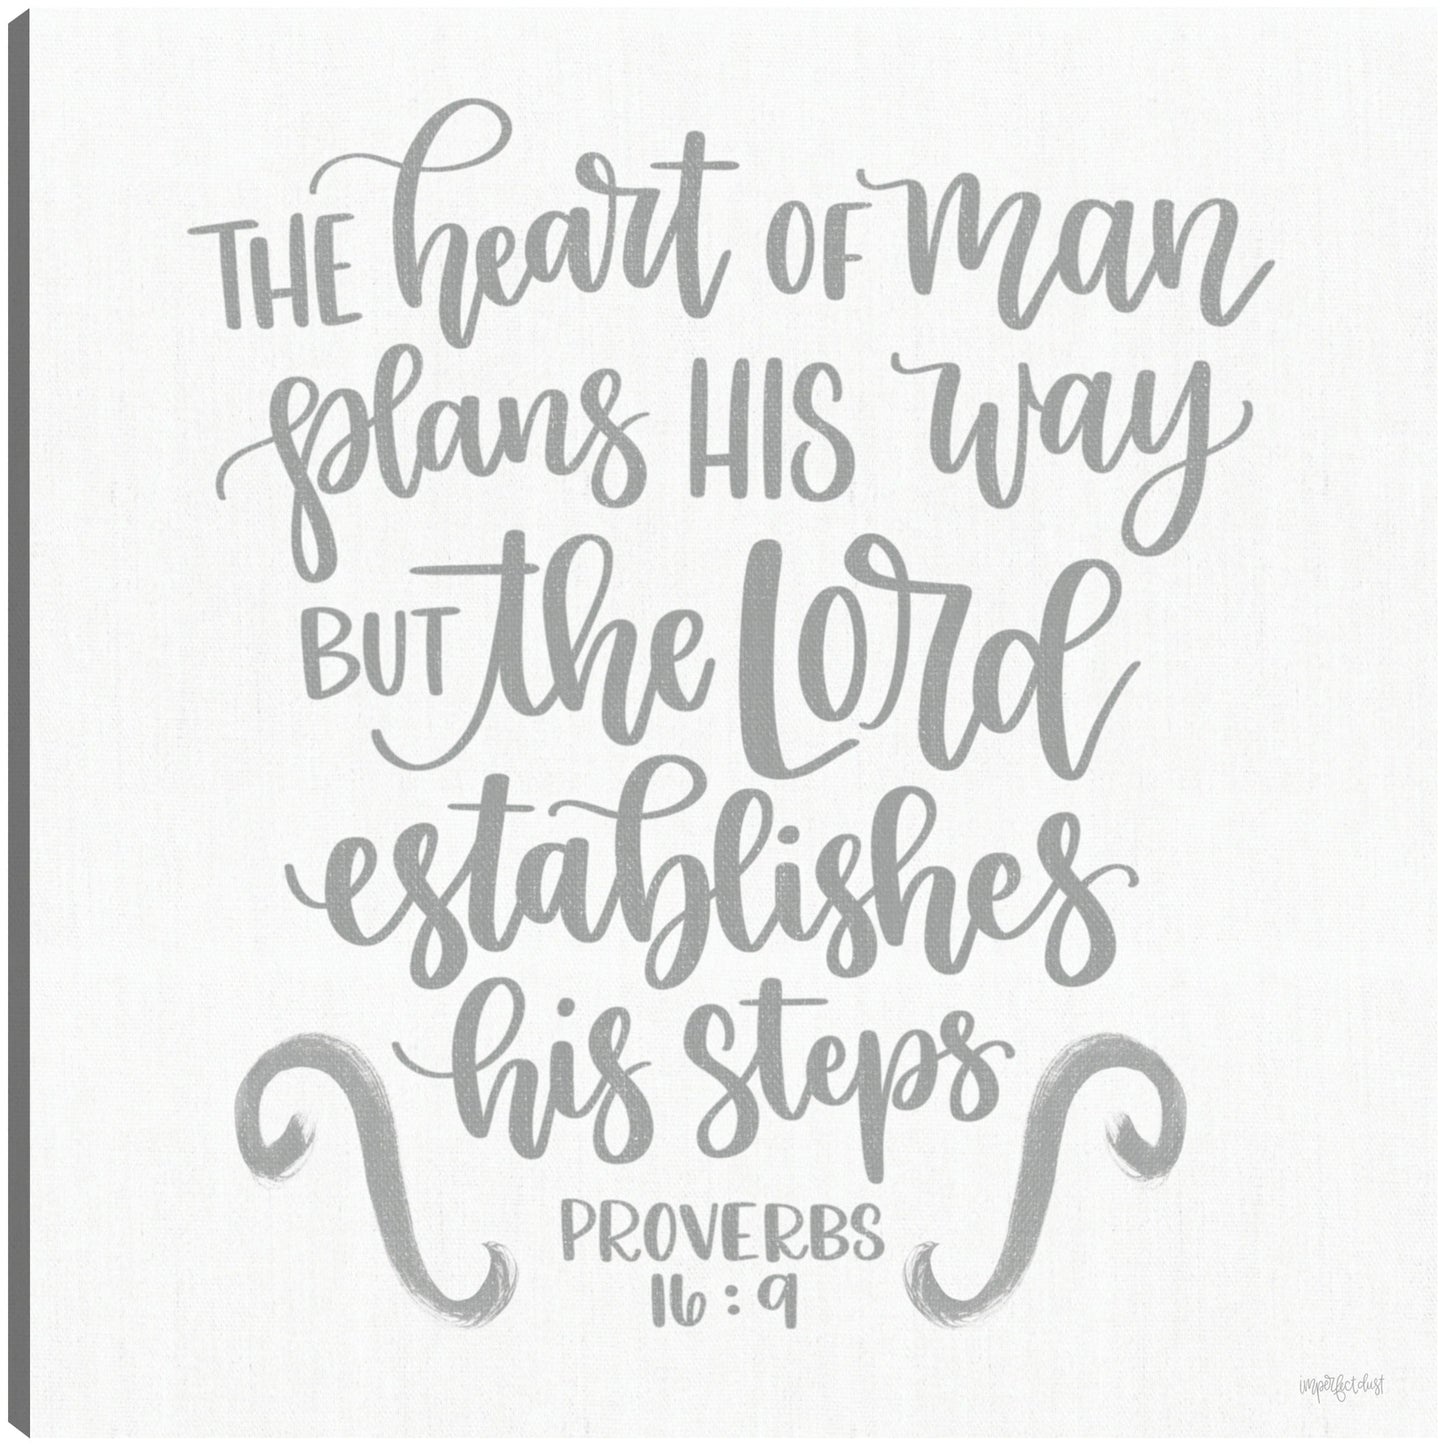 THE heart OF man
plans HIS way
BUT the Lord
establishes
his steps
PROVERBS
16:9
imperfectdust